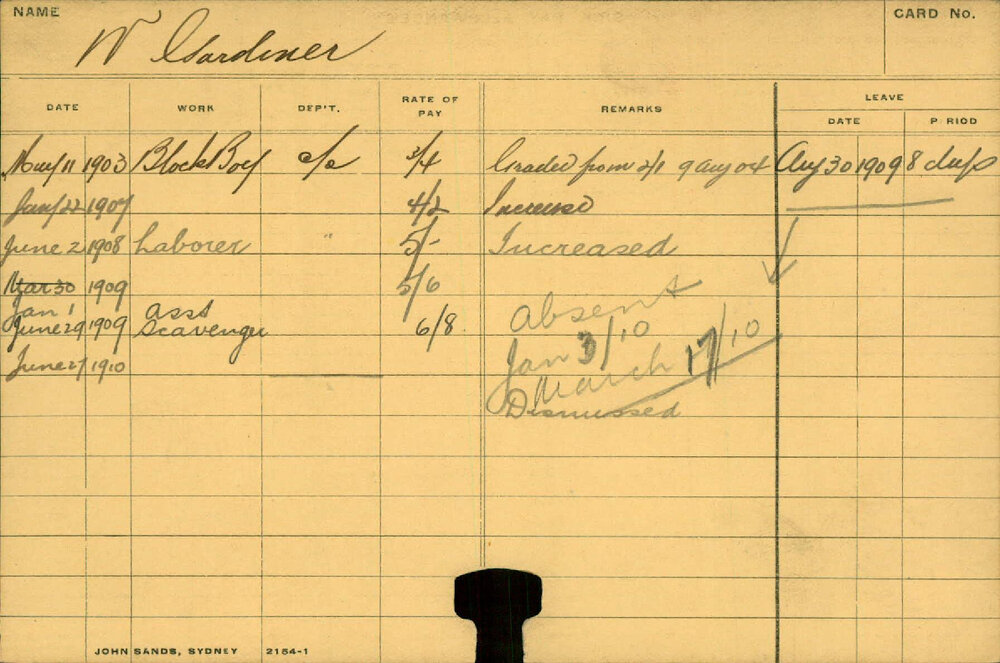 NAME
W Gardiner
CARD No.
DATE WORK DEP'T. RATE OF PAY REMARKS LEAVE
DATE PERIOD
May 11 1903 Block Boy c/c 3/4 Graded from 2/1 9 Aug 04 Aug 30 1909 8 days
Jany 22 1907 4/2 Increase
June 2 1908 Laborer " 5/- Increased
Mar 30 1909 5/6
Jan 1 Asst Absent
June 29 1909 Scavenger 6/8 Jan 3/10
June 27 1910 March 17/10
Dismussed
JOHN SANDS, SYDNEY 2154-1